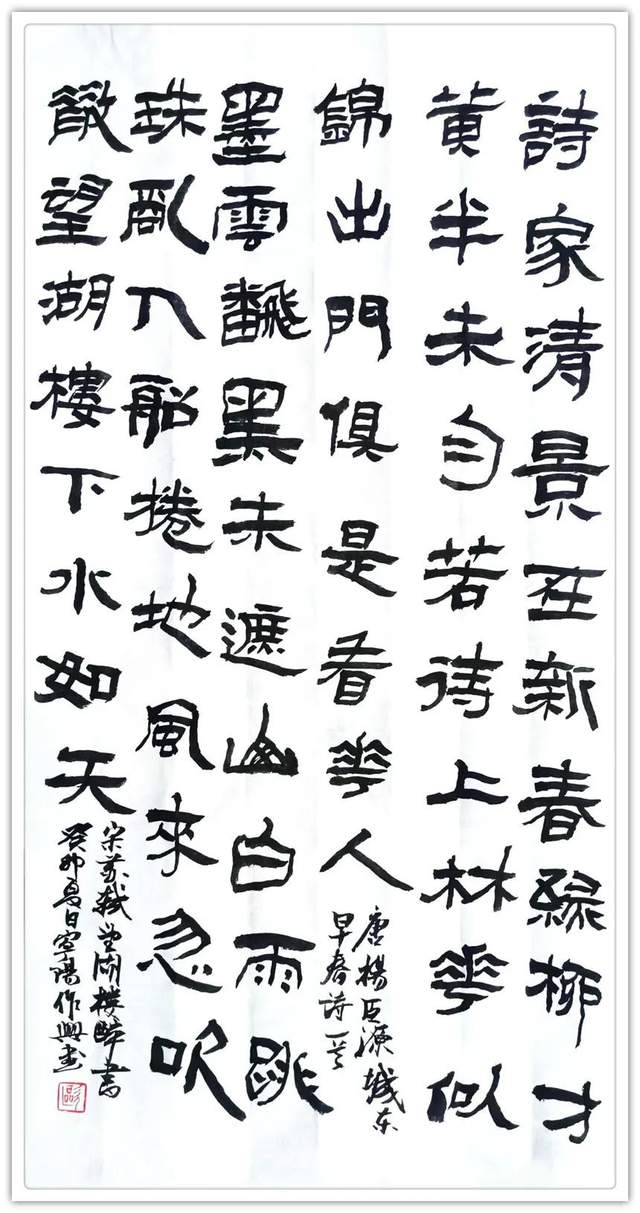 詩家清景在新春綠柳才
黄半未匀若待上林華似
錦出門俱是看華人
唐楊巨源城东
早春詩一首
墨雲飜黑未遮山白雨跳
珠亂入船捲地風來忽吹
散望湖樓下水如天
宋蘇軾望湖樓醉書
癸卯夏日寧陽作興書